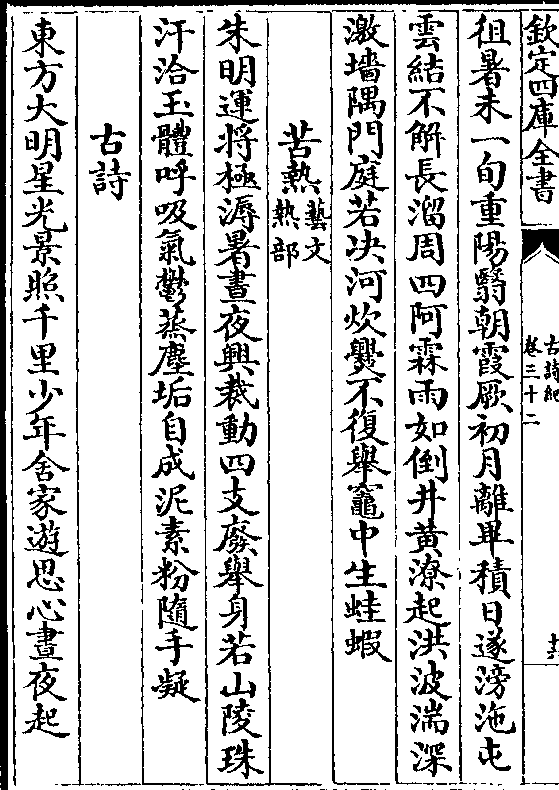 欽定四庫全書
古詩紀
卷三十二
徂暑未一旬重陽翳朝霞厥初月離畢積日遂滂沲屯
雲結不解長溜周四阿霖雨如倒井黃潦起洪波湍深
激墻隅門庭若决河炊爨不復舉竈中生蛙蝦
苦熱藝文熱部
朱明運將極溽暑晝夜興裁動四支廢舉身若山陵珠
汗洽玉體呼吸氣鬱蒸塵垢自成泥素粉隨手凝
古詩
東方大明星光景照千里少年舍家遊思心晝夜起